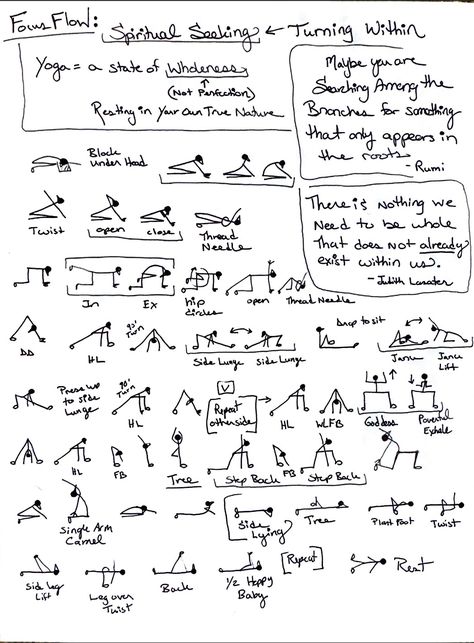 Focus Flow: Spiritual Seeking ← Turning Within
Yoga = a state of Wholeness
(Not Perfection)
Resting in Your Own True Nature
Maybe you are
Searching Among the
Branches for something
that only appears in
the roots.
- Rumi
There is nothing we
Need to be whole
That does not already
exist within us.
- Judith Lasater
Block
under Head
Twist open close Thread
Needle
In Ex hip
circles open Thread Needle
DD HL 90° Turn Side Lunge Side Lunge Drop to sit Janu Janu
Lift
Press up
to side
Lunge 90° Turn HL V Repeat
other side HL WLFB Goddess Powerful
Exhale
HL FB Tree Step Back FB Step Back
Single Arm
Camel Side
Lying Tree Plant Foot Twist
Side Leg
Lift Leg over
Twist Back 1/2 Happy
Baby [Repeat] Rest